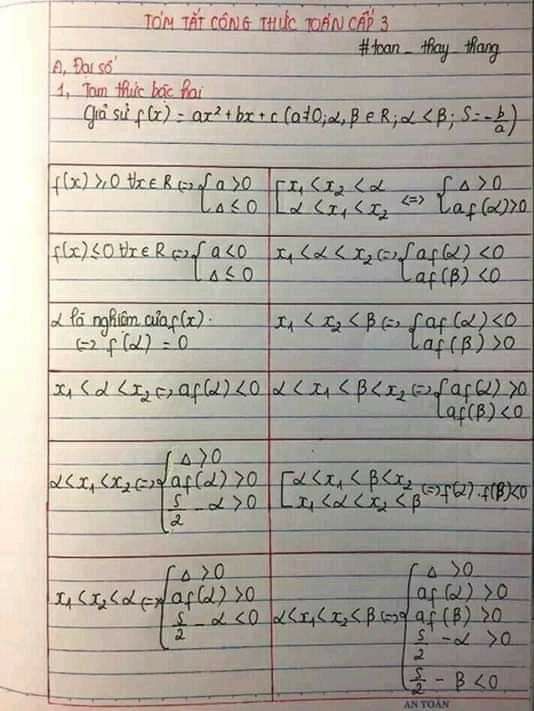 TÓM TẮT CÔNG THỨC TOÁN CẤP 3
#toan_thay_thang
A, Đại số
1, Tam thức bậc hai
Giả sử f(x) = ax² + bx + c (a≠0; α, β ∈ R; α < β; S = -b/a)
f(x) ≥ 0 ∀x ∈ R <=> { a > 0
Δ ≤ 0
[ x₁ < x₂ < α
α < x₁ < x₂ <=> { Δ > 0
af(α) > 0
f(x) ≤ 0 ∀x ∈ R <=> { a < 0
Δ ≤ 0
x₁ < α < x₂ <=> { af(α) < 0
af(β) < 0
α là nghiệm của f(x).
<=> f(α) = 0
x₁ < x₂ < β <=> { af(α) < 0
af(β) > 0
x₁ < α < x₂ <=> af(α) < 0
α < x₁ < β < x₂ <=> { af(α) > 0
af(β) < 0
α < x₁ < x₂ <=> { Δ > 0
af(α) > 0
S/2 - α > 0
[ α < x₁ < β < x₂
x₁ < α < x₂ < β <=> f(α).f(β) < 0
x₁ < x₂ < α <=> { Δ > 0
af(α) > 0
S/2 - α < 0
α < x₁ < x₂ < β <=> { Δ > 0
af(α) > 0
af(β) > 0
S/2 - α > 0
S/2 - β < 0
AN TOÀN